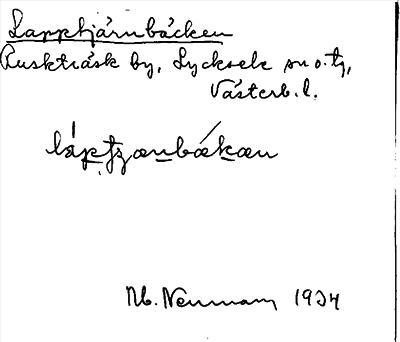 Lapptjärnbäcken
Rusksträsk by, Lycksele sn o. tg,
Västerb. l.
láptʒænbækæn
Nb. Neumann 1934